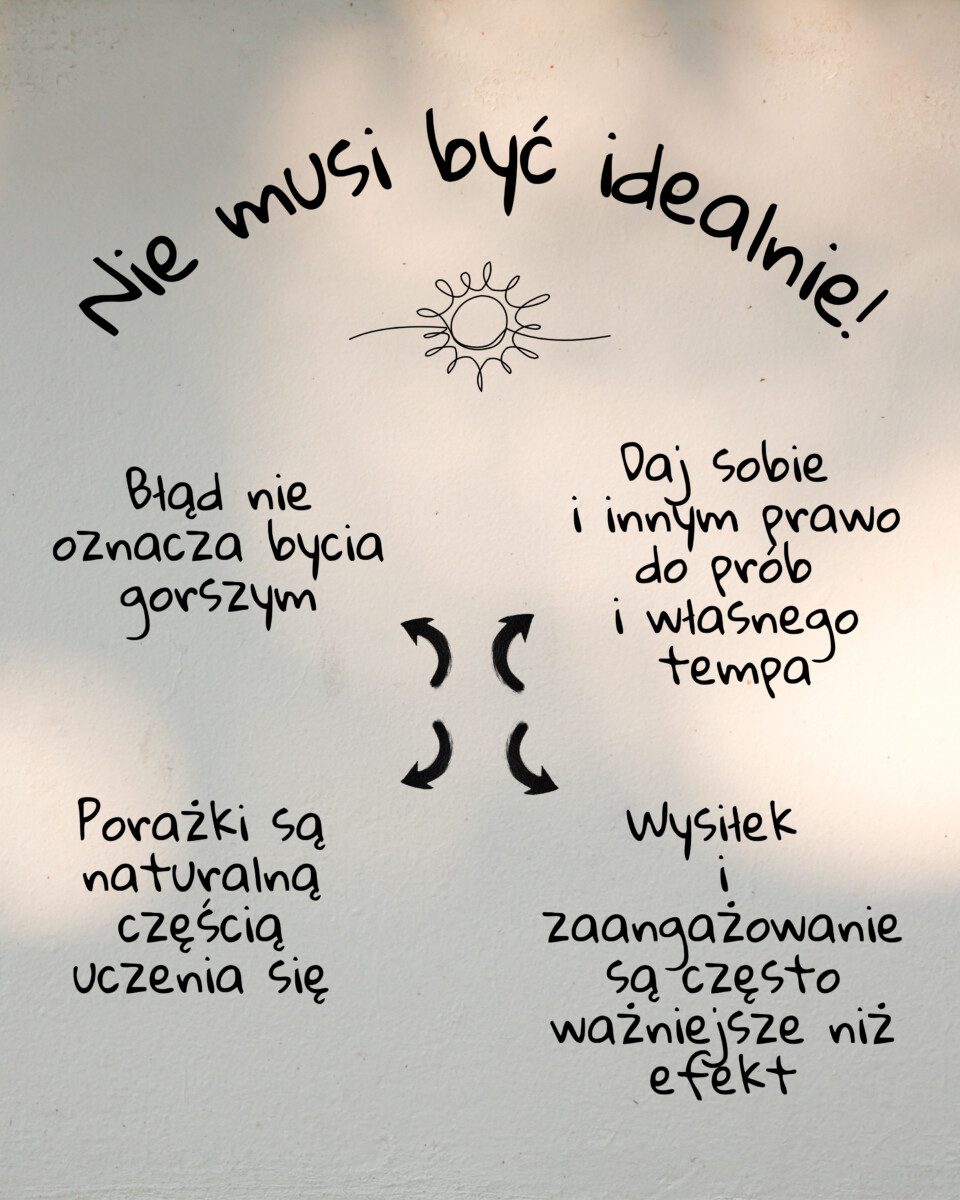 Nie musi być idealnie!
Błąd nie
oznacza bycia
gorszym
Daj sobie
i innym prawo
do prób
i własnego
tempa
Porażki są
naturalną
częścią
uczenia się
Wysiłek
i
zaangażowanie
są często
ważniejsze niż
efekt